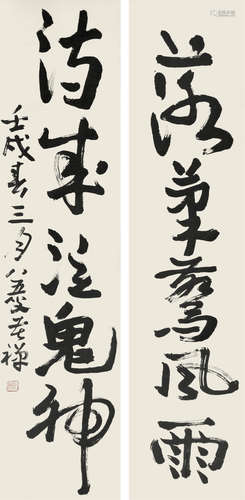 落筆驚風雨
詩成泣鬼神
壬戌春三月八五叟苦禪